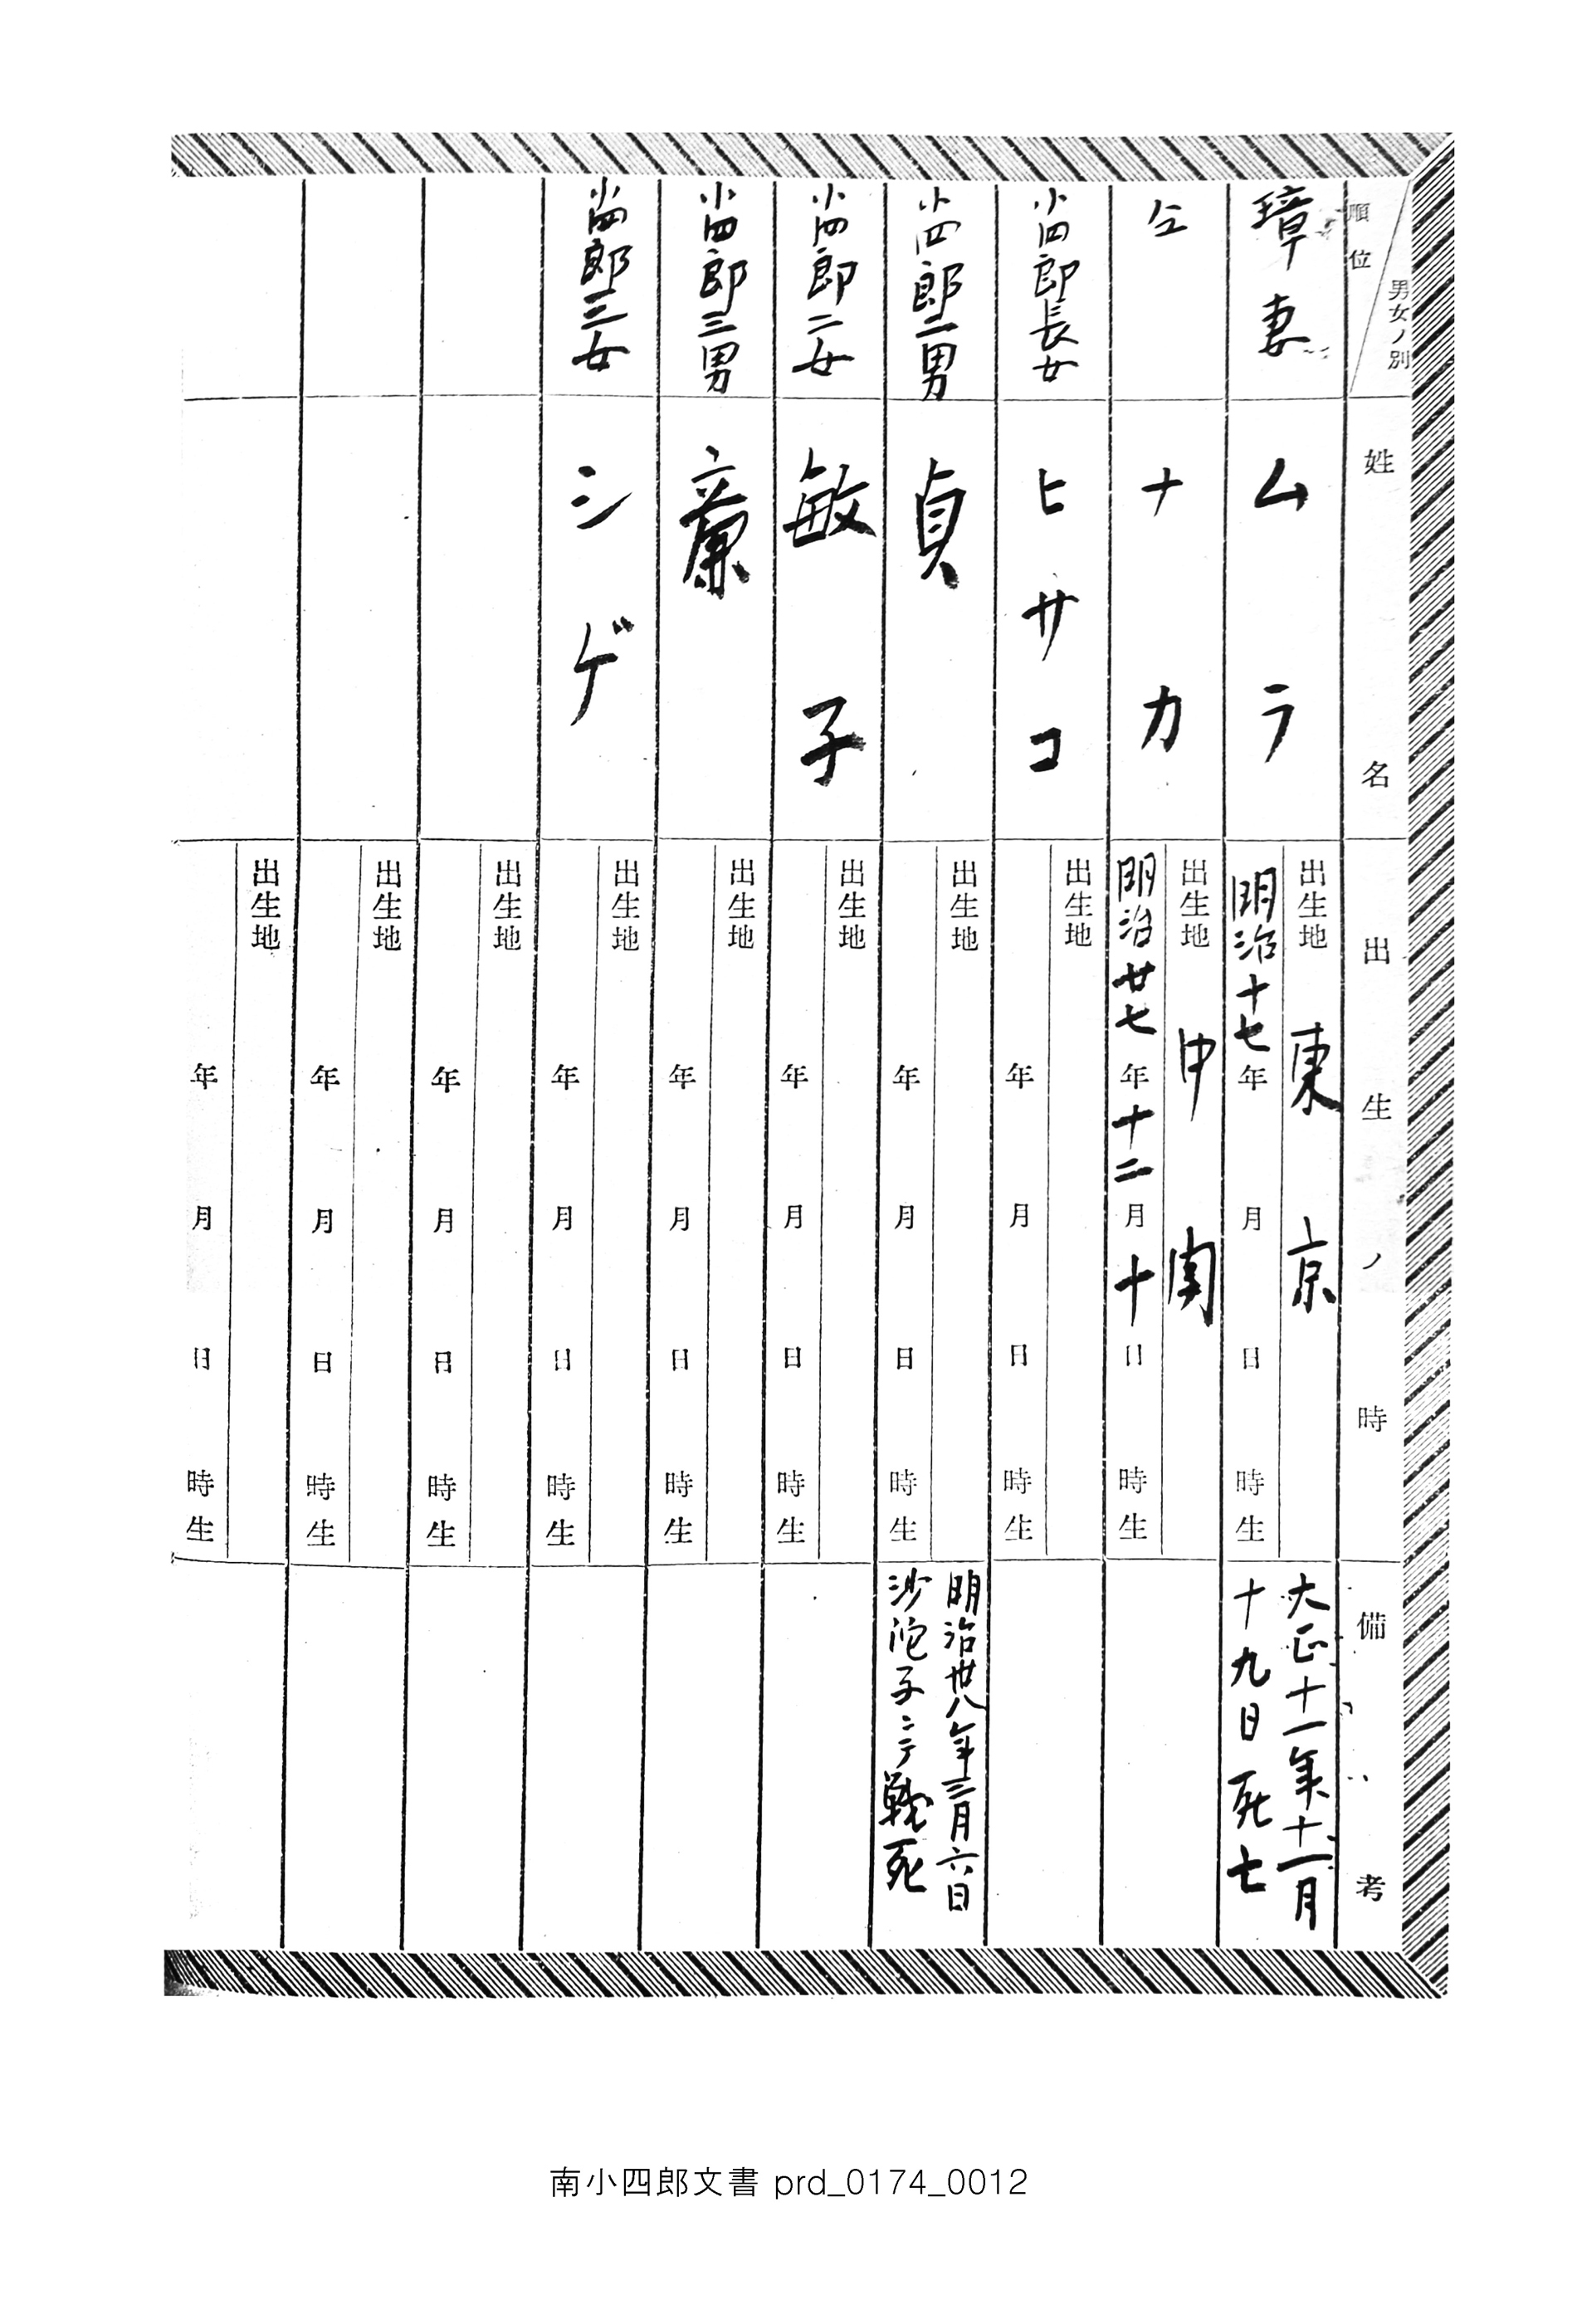 順位
男女ノ別
姓名
出生ノ時
備考
璋妻
ムラ
出生地 東京
明治十七年 月 日 時生
大正十一年十一月
十九日死亡
仝
ナカ
出生地 中関
明治廿七年十二月十日 時生
小四郎長女
ヒサコ
出生地
年 月 日 時生
小四郎二男
貞
出生地
年 月 日 時生
明治卅八年三月六日
沙陀子ニテ戦死
小四郎二女
敏子
出生地
年 月 日 時生
小四郎三男
出生地
年 月 日 時生
小四郎三女
シゲ
出生地
年 月 日 時生
出生地
年 月 日 時生
出生地
年 月 日 時生
出生地
年 月 日 時生
南小四郎文書 prd_0174_0012